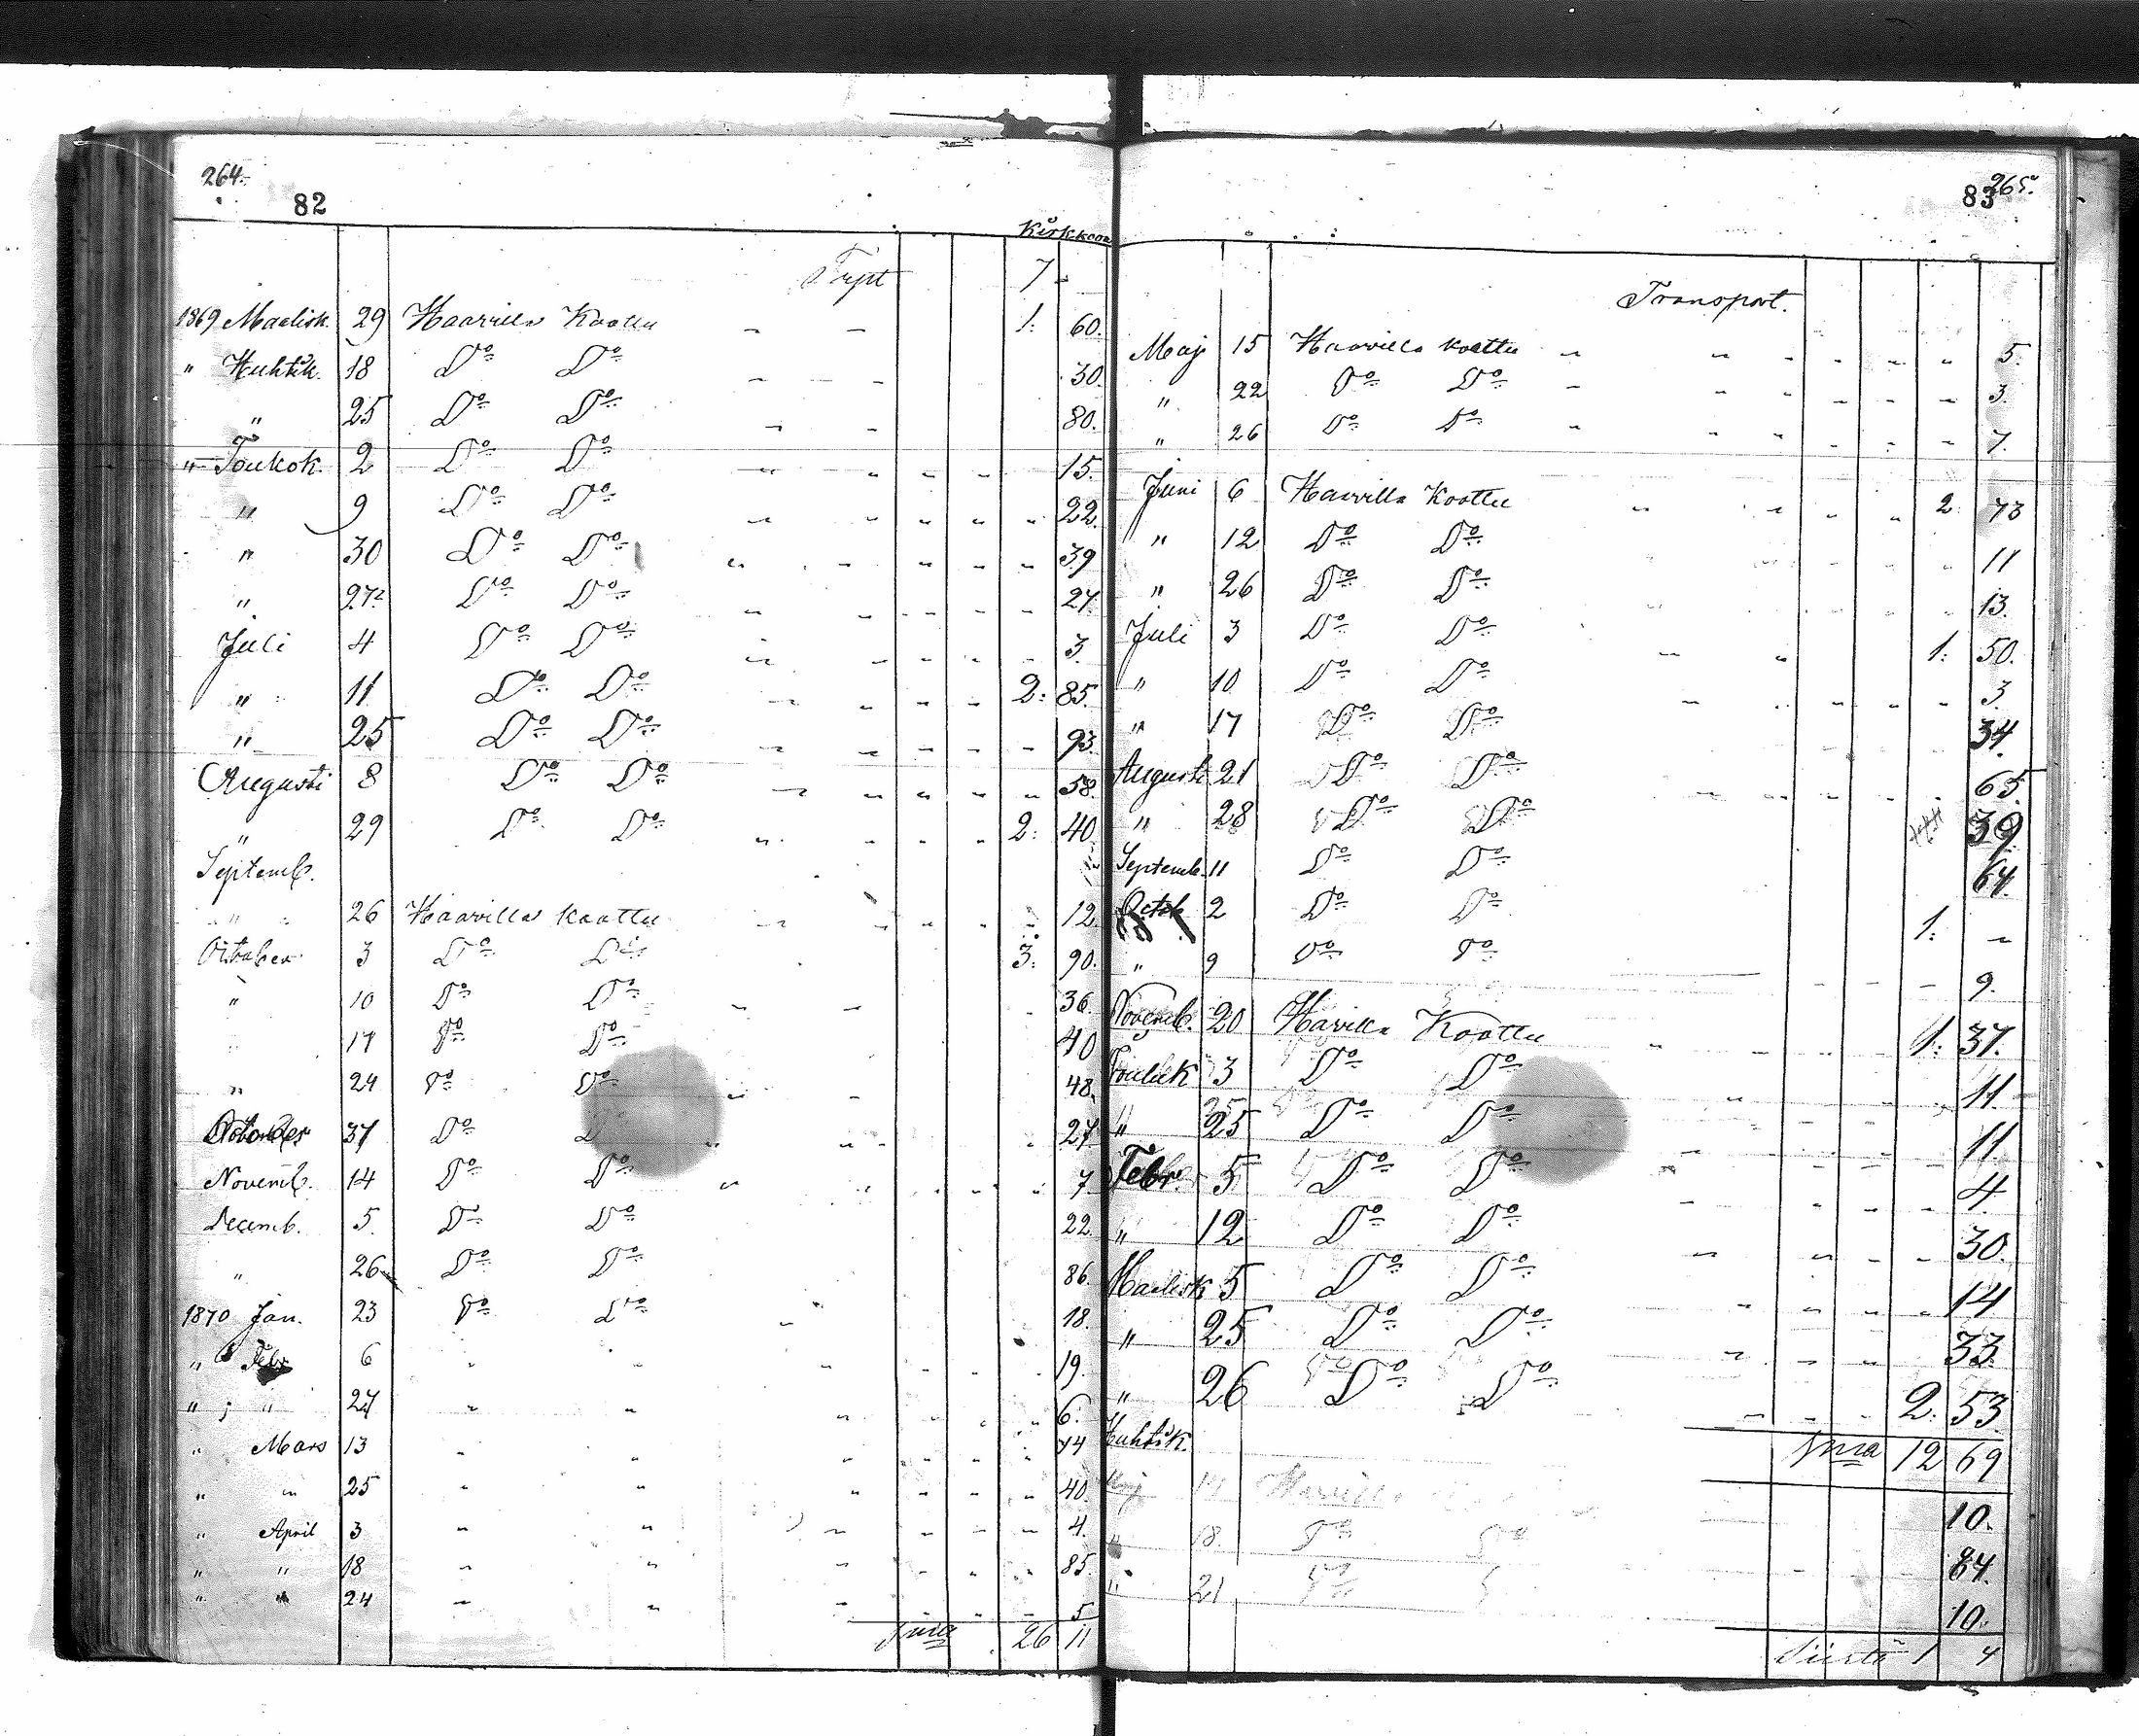 264.
82
Kirkkoon
7 -
1869 Maalisk. 29 Haavilla Koottu - - 1: 60.
" Huhtik. 18 Do Do - - - 30.
" 25 Do Do - - 80.
" Toukok. 2 Do Do - - - - 15.
" 9 Do Do - - - - - 22.
" 30 Do Do - - - - - 39
" 27 Do Do - - - - - 27.
Juli 4 Do Do - - - - - 3.
" 11 Do Do - - - - 2: 85.
" 25 Do Do - - - - - 93.
Augusti 8 Do Do - - - - - 58.
" 29 Do Do - - - - 2: 40.
Septemb.
" 26 Haavilla koottu - - - - - 12.
October 3 Do Do 3: 90.
" 10 Do Do - - 36.
17 Do Do 40
" 24 Do Do - - 48.
October 31 Do Do - - 27
Novemb. 14 Do Do - - - - 7
Decemb. 5. Do Do 22.
" 26 Do Do 86.
1870 Jan. 23 Do Do - 18.
" Febr 6 - - - - - 19.
" " 27 - - - - - - 6.
" Mars 13 - - - - - - 14
" " 25 - - - - - - 40.
" April 3 - - - - - - 4.
" " 18 - - - - - 85.
" " 24 - - - - - - 5
Suma 26 11
265.
83
Transport.
Maj 15 Haavilla koottu - - - - - - 5.
" 22 Do Do - - - - - - 3.
" 26 Do Do - - - - - - 7.
Juni 6 Haavilla Koottu - - - - 2 73
" 12 Do Do - - - 11
" 26 Do Do - - - 13.
Juli 3 Do Do - - 1: 50.
" 10 Do Do - - - - - 3.
" 17 Do Do 34.
Augusti 21 Do Do - - - - 65.
" 28 Do Do 39
Septemb. 11 Do Do 64.
Octob 2 Do Do 1: -
" 9 Do Do - - - 9.
Novemb. 20 Havilla Koottu - - - - 1: 37.
Jouluk 3 Do Do - - - 11.
" 25 Do Do 11
Febr. 5 Do Do - - - - 4.
" 12 Do Do - - - - 30.
Maalisk 5 Do Do - - - - 14
" 25 Do Do - - - - 33.
" 26 Do Do - - - 2: 53
Huhtik.
Suma 12 69
Maj 14 Haavilla 10.
" 18. Do Do 84.
" 21 Do 10.
Siirtä 1 4